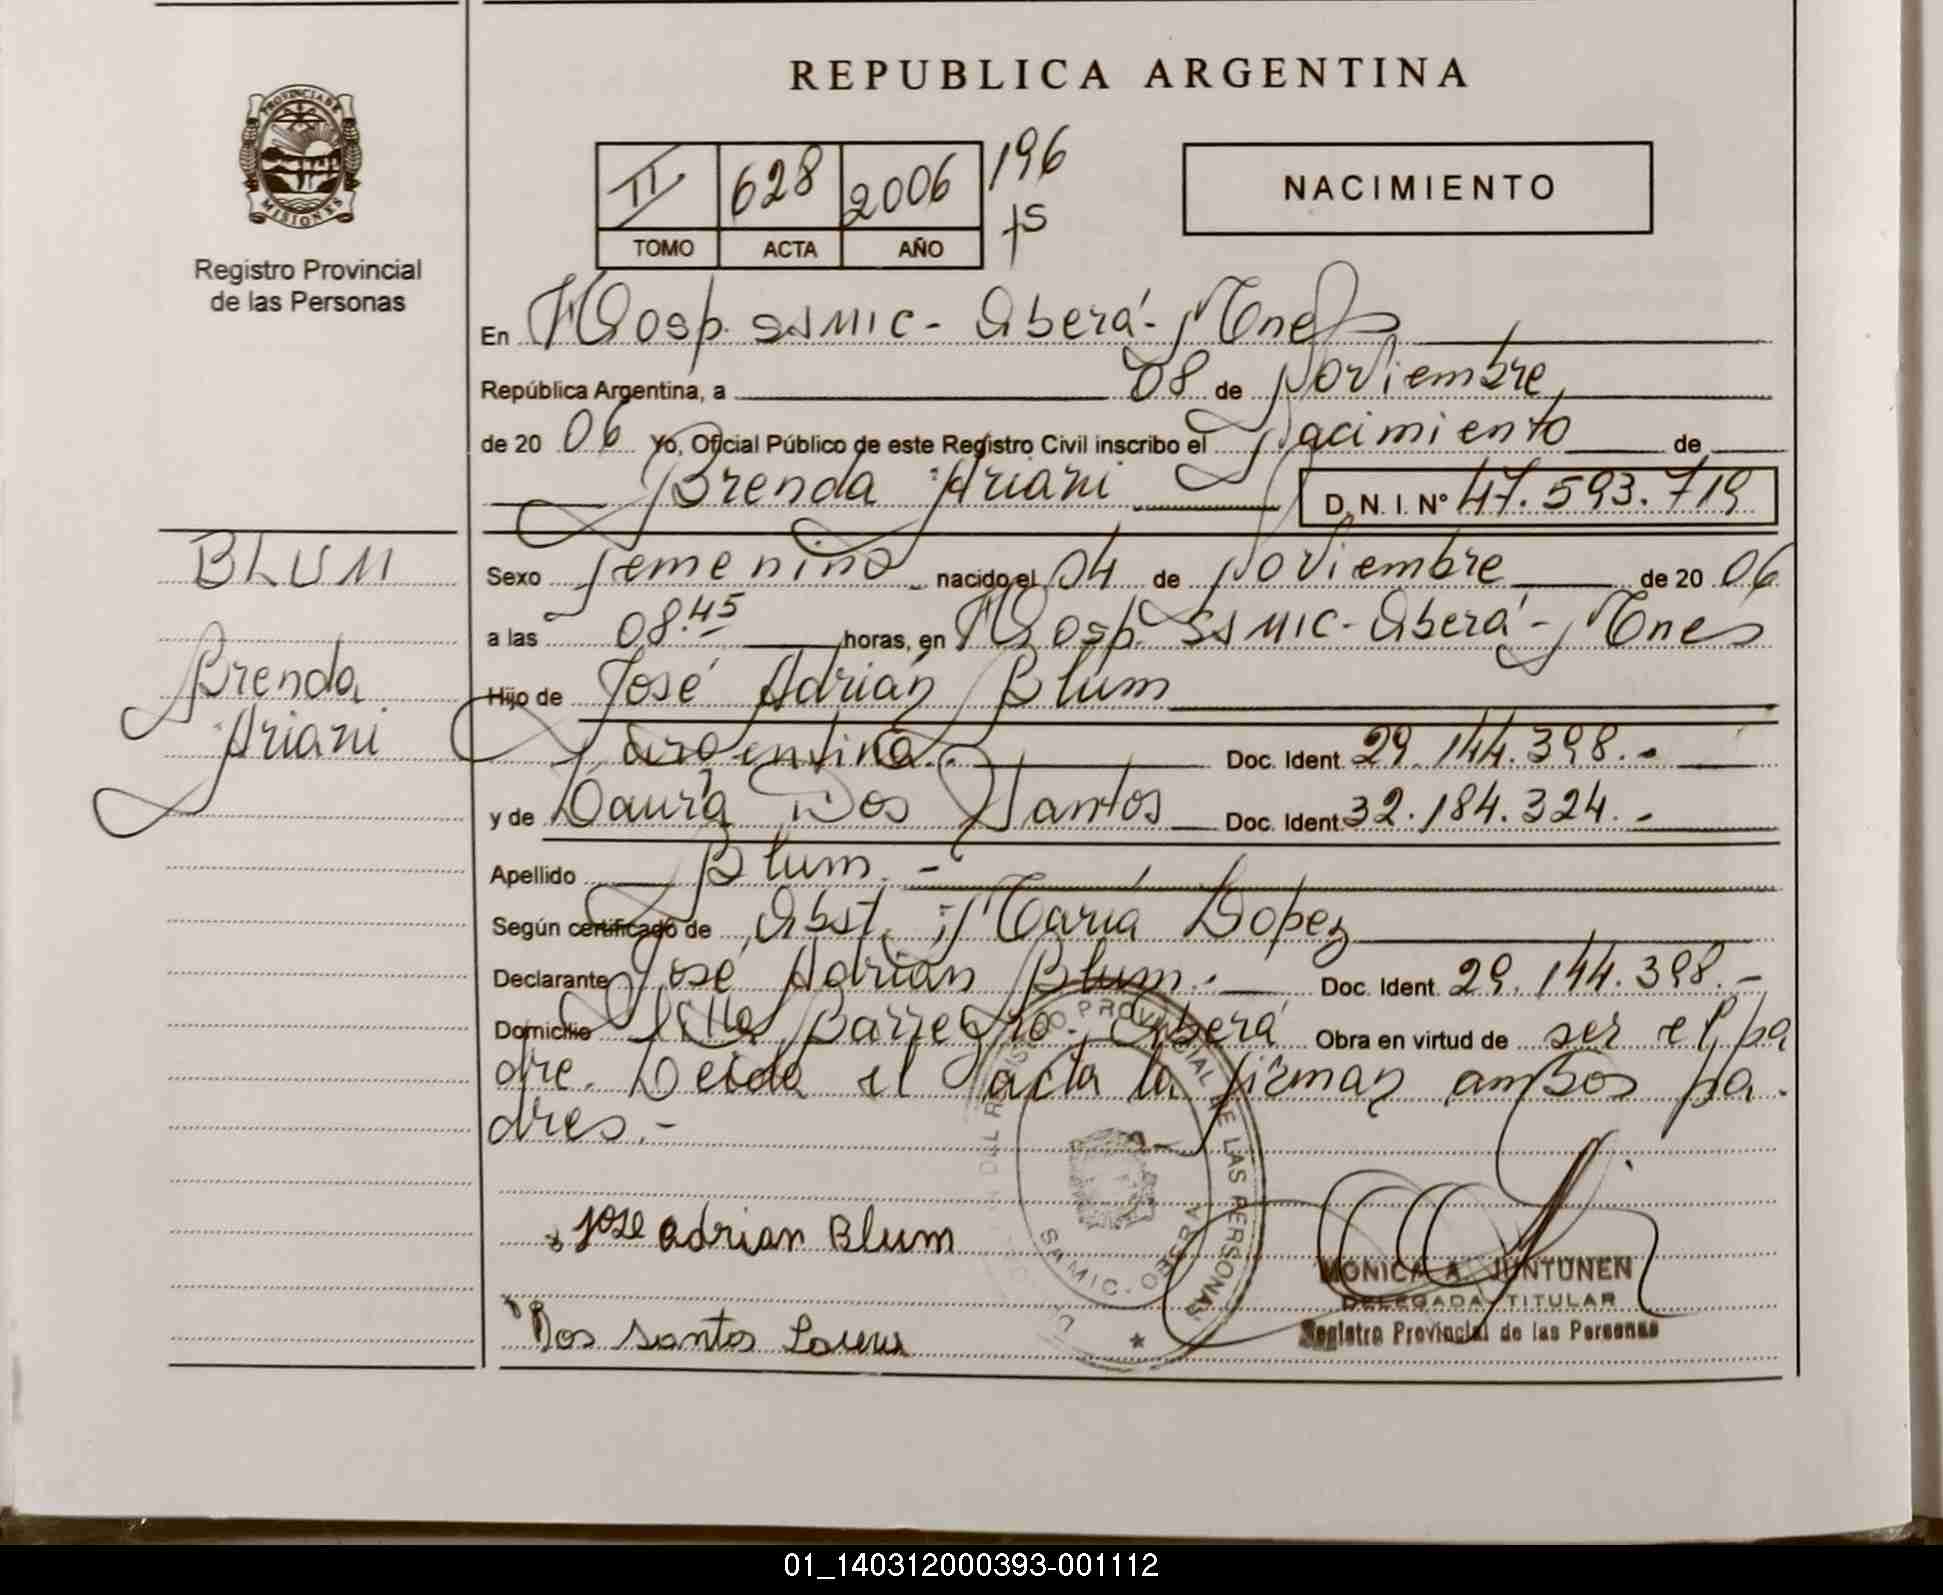 REPUBLICA ARGENTINA
PROVINCIA DE
MISIONES
Registro Provincial
de las Personas
II 628 2006 196
TOMO ACTA AÑO fs
NACIMIENTO
En Hosp. SAMIC - Oberá - Mnes
República Argentina, a 08 de Noviembre
de 20 06 Yo, Oficial Público de este Registro Civil inscribo el Nacimiento de
Brenda Ariani D. N. I. Nº 47.593.719
BLUM
Brenda
Ariani
Sexo femenino nacido el 04 de Noviembre de 20 06
a las 08.45 horas, en Hosp. SAMIC - Oberá - Mnes
Hijo de José Adrián Blum
Argentina. Doc. Ident. 29.144.398.-
y de Laura Dos Santos Doc. Ident. 32.184.324.-
Apellido Blum.-
Según certificado de Obst. María Lopez
Declarante José Adrián Blum.- Doc. Ident. 29.144.398.-
Domicilio Villa Barreyro - Oberá Obra en virtud de ser el pa
dre. Leida el acta la firman ambos pa-
dres.-
Jose adrian Blum
Dos santos Laura
PROVINCIAL DE LAS PERSONAS
SAMIC - OBERA
MONICA A. JUNTUNEN
DELEGADA TITULAR
Registro Provincial de las Personas
01_140312000393-001112